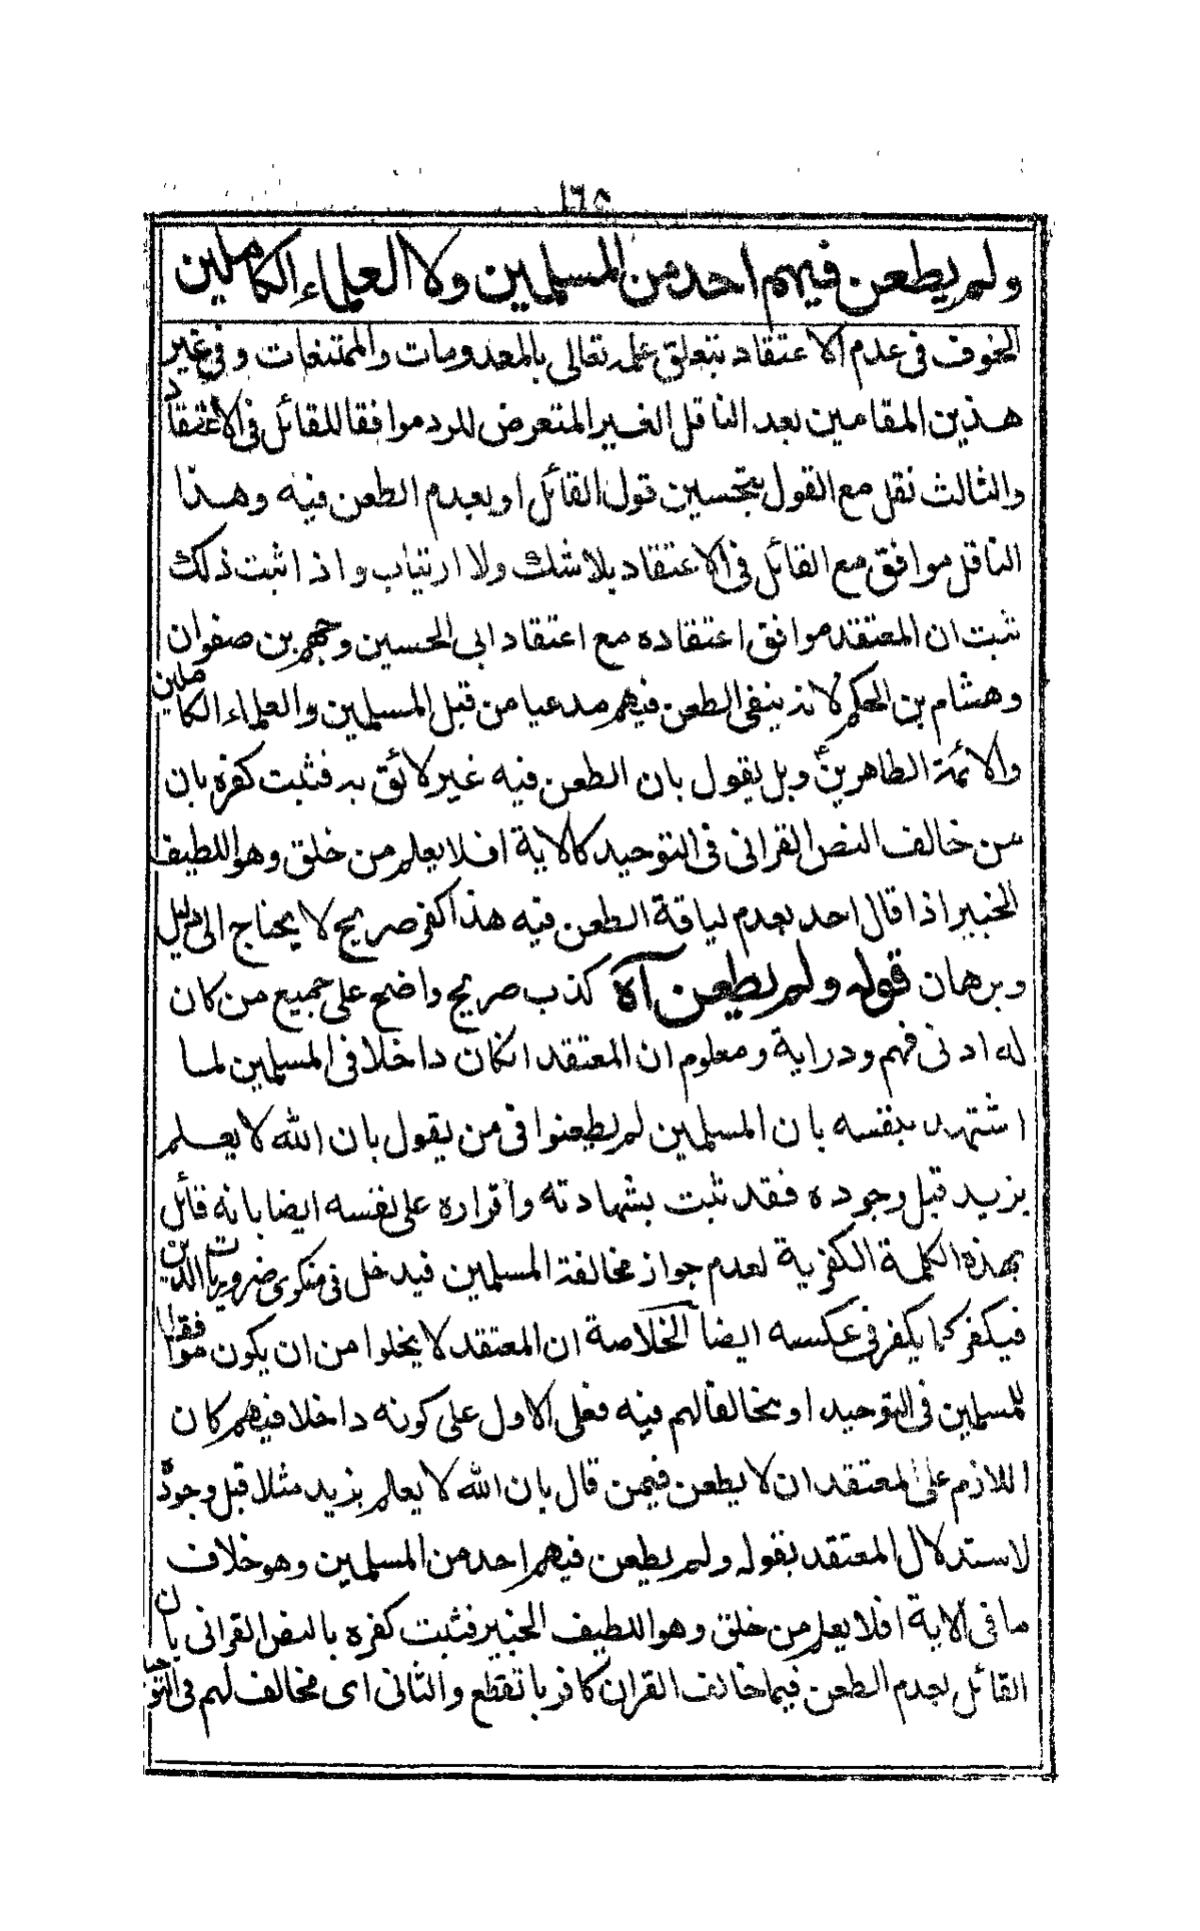 ١٦٥
ولم يطعن فيهم احد من المسلمين ولا العلماء الكاملين
الخوف فى عدم الاعتقاد بتعلق علمه تعالى بالمعدومات والممتنعات وفى غير
هذين المقامين يعد الناقل الغير المتعرض للرد موافقا للقائل فى الاعتقاد
والثالث نقل مع القول بتحسين قول القائل او بعدم الطعن فيه وهذا
الناقل موافق مع القائل فى الاعتقاد بلا شك ولا ارتياب واذا ثبت ذلك
ثبت ان المعتقد موافق اعتقاده مع اعتقاد ابى الحسين وجهم بن صفوان
وهشام بن الحكم لانه ينفى الطعن فيهم مدعيا من قبل المسلمين والعلماء الكاملين
والائمة الطاهرين ع وبل يقول بان الطعن فيه غير لائق به فثبت كفره بان
من خالف النص القرانى فى التوحيد كالاية افلا يعلم من خلق وهو اللطيف
الخبير اذا قال احد بعدم لياقة الطعن فيه هذا كفر صريح لا يحتاج الى دليل
وبرهان قوله ولم يطعن آه كذب صريح واضح على جميع من كان
له ادنى فهم ودراية ومعلوم ان المعتقد انكان داخلا فى المسلمين لما
اشتهد بنفسه بان المسلمين لم يطعنوا فى من يقول بان الله لا يعلم
بزيد قبل وجوده فقد ثبت بشهادته واقراره على نفسه ايضا بانه قائل
بهذه الكلمة الكفرية لعدم جواز مخالفة المسلمين فيدخل فى منكرى ضروريات الدين
فيكفر كما يكفر فى عكسه ايضا الخلاصة ان المعتقد لا يخلوا من ان يكون موافقا
للمسلمين فى التوحيد او مخالفا لهم فيه فعلى الاول على كونه داخلا فيهم كان
اللازم على المعتقد ان لا يطعن فيمن قال بان الله لا يعلم بزيد مثلا قبل وجوده
لاستدلال المعتقد بقوله ولم يطعن فيهم احد من المسلمين وهو خلاف
ما فى الاية افلا يعلم من خلق وهو اللطيف الخبير فثبت كفره بالنص القرانى بان
القائل بعدم الطعن فيما خالف القران كافر بالقطع والثانى اى مخالف لهم فى التوحيد